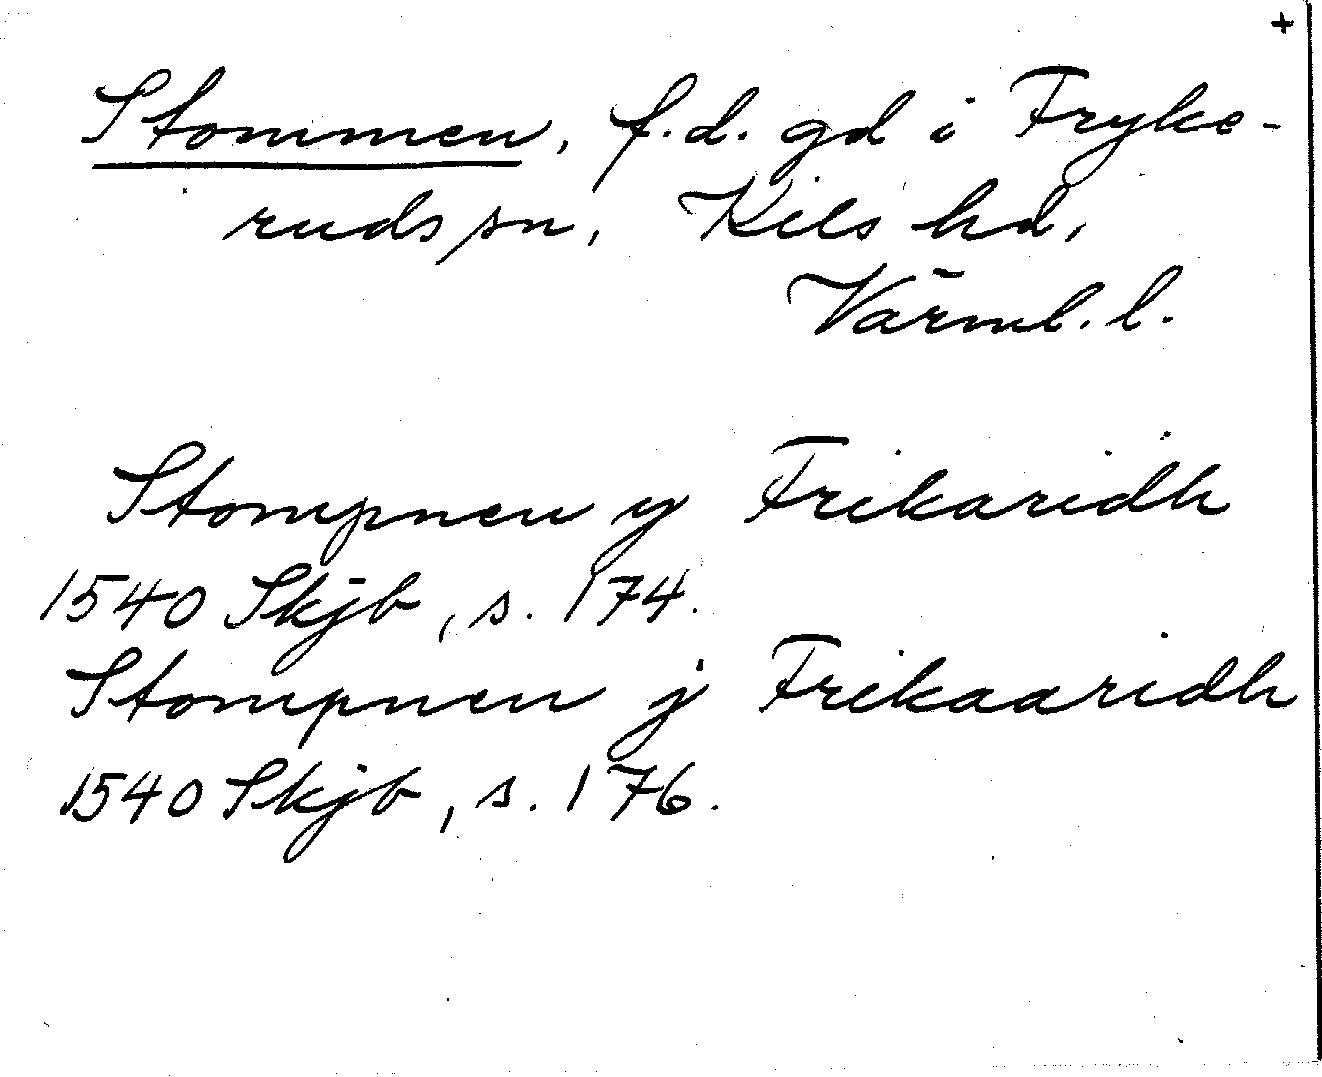 +
Stommen, f.d. gd i Fryke-
ruds sn, Kils hd,
Värml. l.
Stompnen y Frikaridh
1540 Skjb, s. 174.
Stompnen j Frikaaridh
1540 Skjb, s. 176.